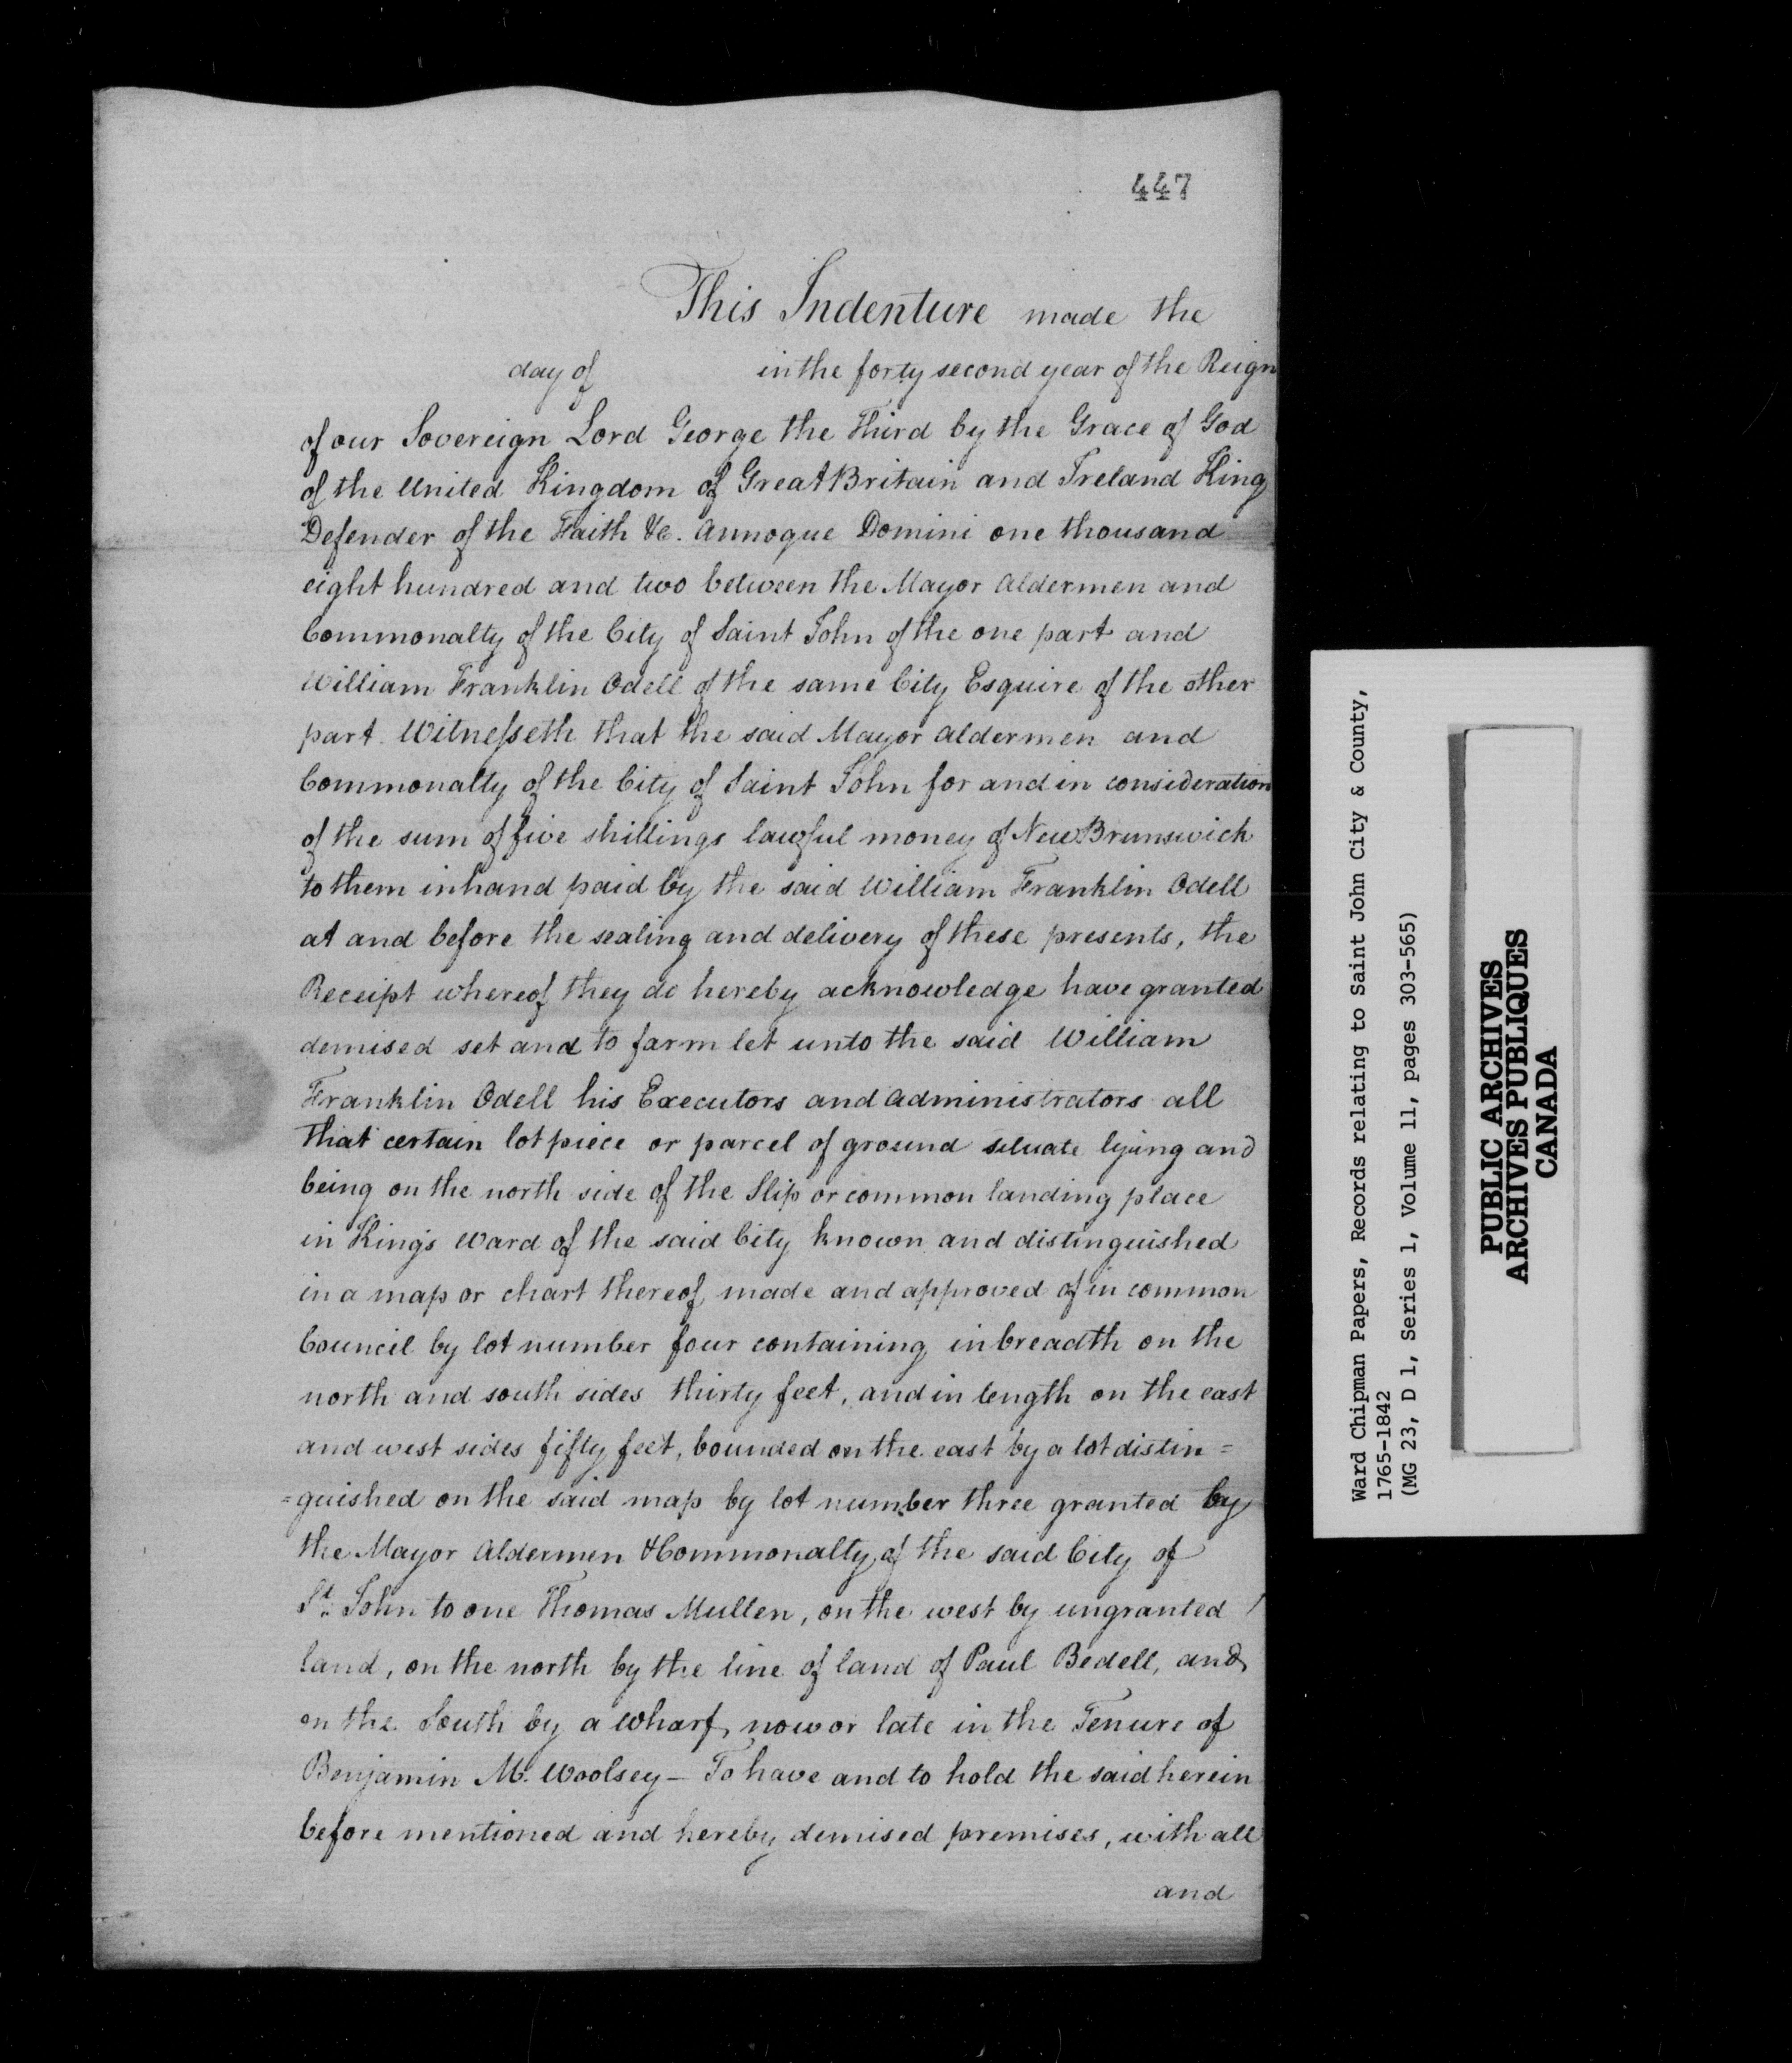 447
This Indenture made the
day of in the forty second year of the Reign
of our Sovereign Lord George the Third by the Grace of God
of the United Kingdom of Great Britain and Ireland King
Defender of the Faith &c. Annoque Domini one thousand
eight hundred and two between the Mayor Aldermen and
Commonalty of the City of Saint John of the one part and
William Franklin Odell of the same City Esquire of the other
part. Witnesseth that the said Mayor Aldermen and
Commonalty of the City of Saint John for and in consideration
of the sum of five shillings lawful money of New Brunswick
to them in hand paid by the said William Franklin Odell
at and before the sealing and delivery of these presents, the
Receipt whereof they do hereby acknowledge have granted
demised set and to farm let unto the said William
Franklin Odell his Executors and Administrators all
that certain lot piece or parcel of ground situate lying and
being on the north side of the Slip or common landing place
in King's Ward of the said City known and distinguished
in a map or chart thereof, made and approved of in common
Council by lot number four containing in breadth on the
north and south sides thirty feet, and in length on the east
and west sides fifty feet, bounded on the east by a lot distin=
=guished on the said map by lot number three granted by
the Mayor Aldermen & Commonalty of the said City of
St. John to one Thomas Mullen, on the west by ungranted
land, on the north by the line of land of Paul Bedell, and
on the South by a Wharf, now or late in the Tenure of
Benjamin M. Woolsey – To have and to hold the said herein
before mentioned and hereby demised premises, with all
and
Ward Chipman Papers, Records relating to Saint John City & County,
1765-1842
(MG 23, D 1, Series 1, Volume 11, pages 303-565)
PUBLIC ARCHIVES
ARCHIVES PUBLIQUES
CANADA